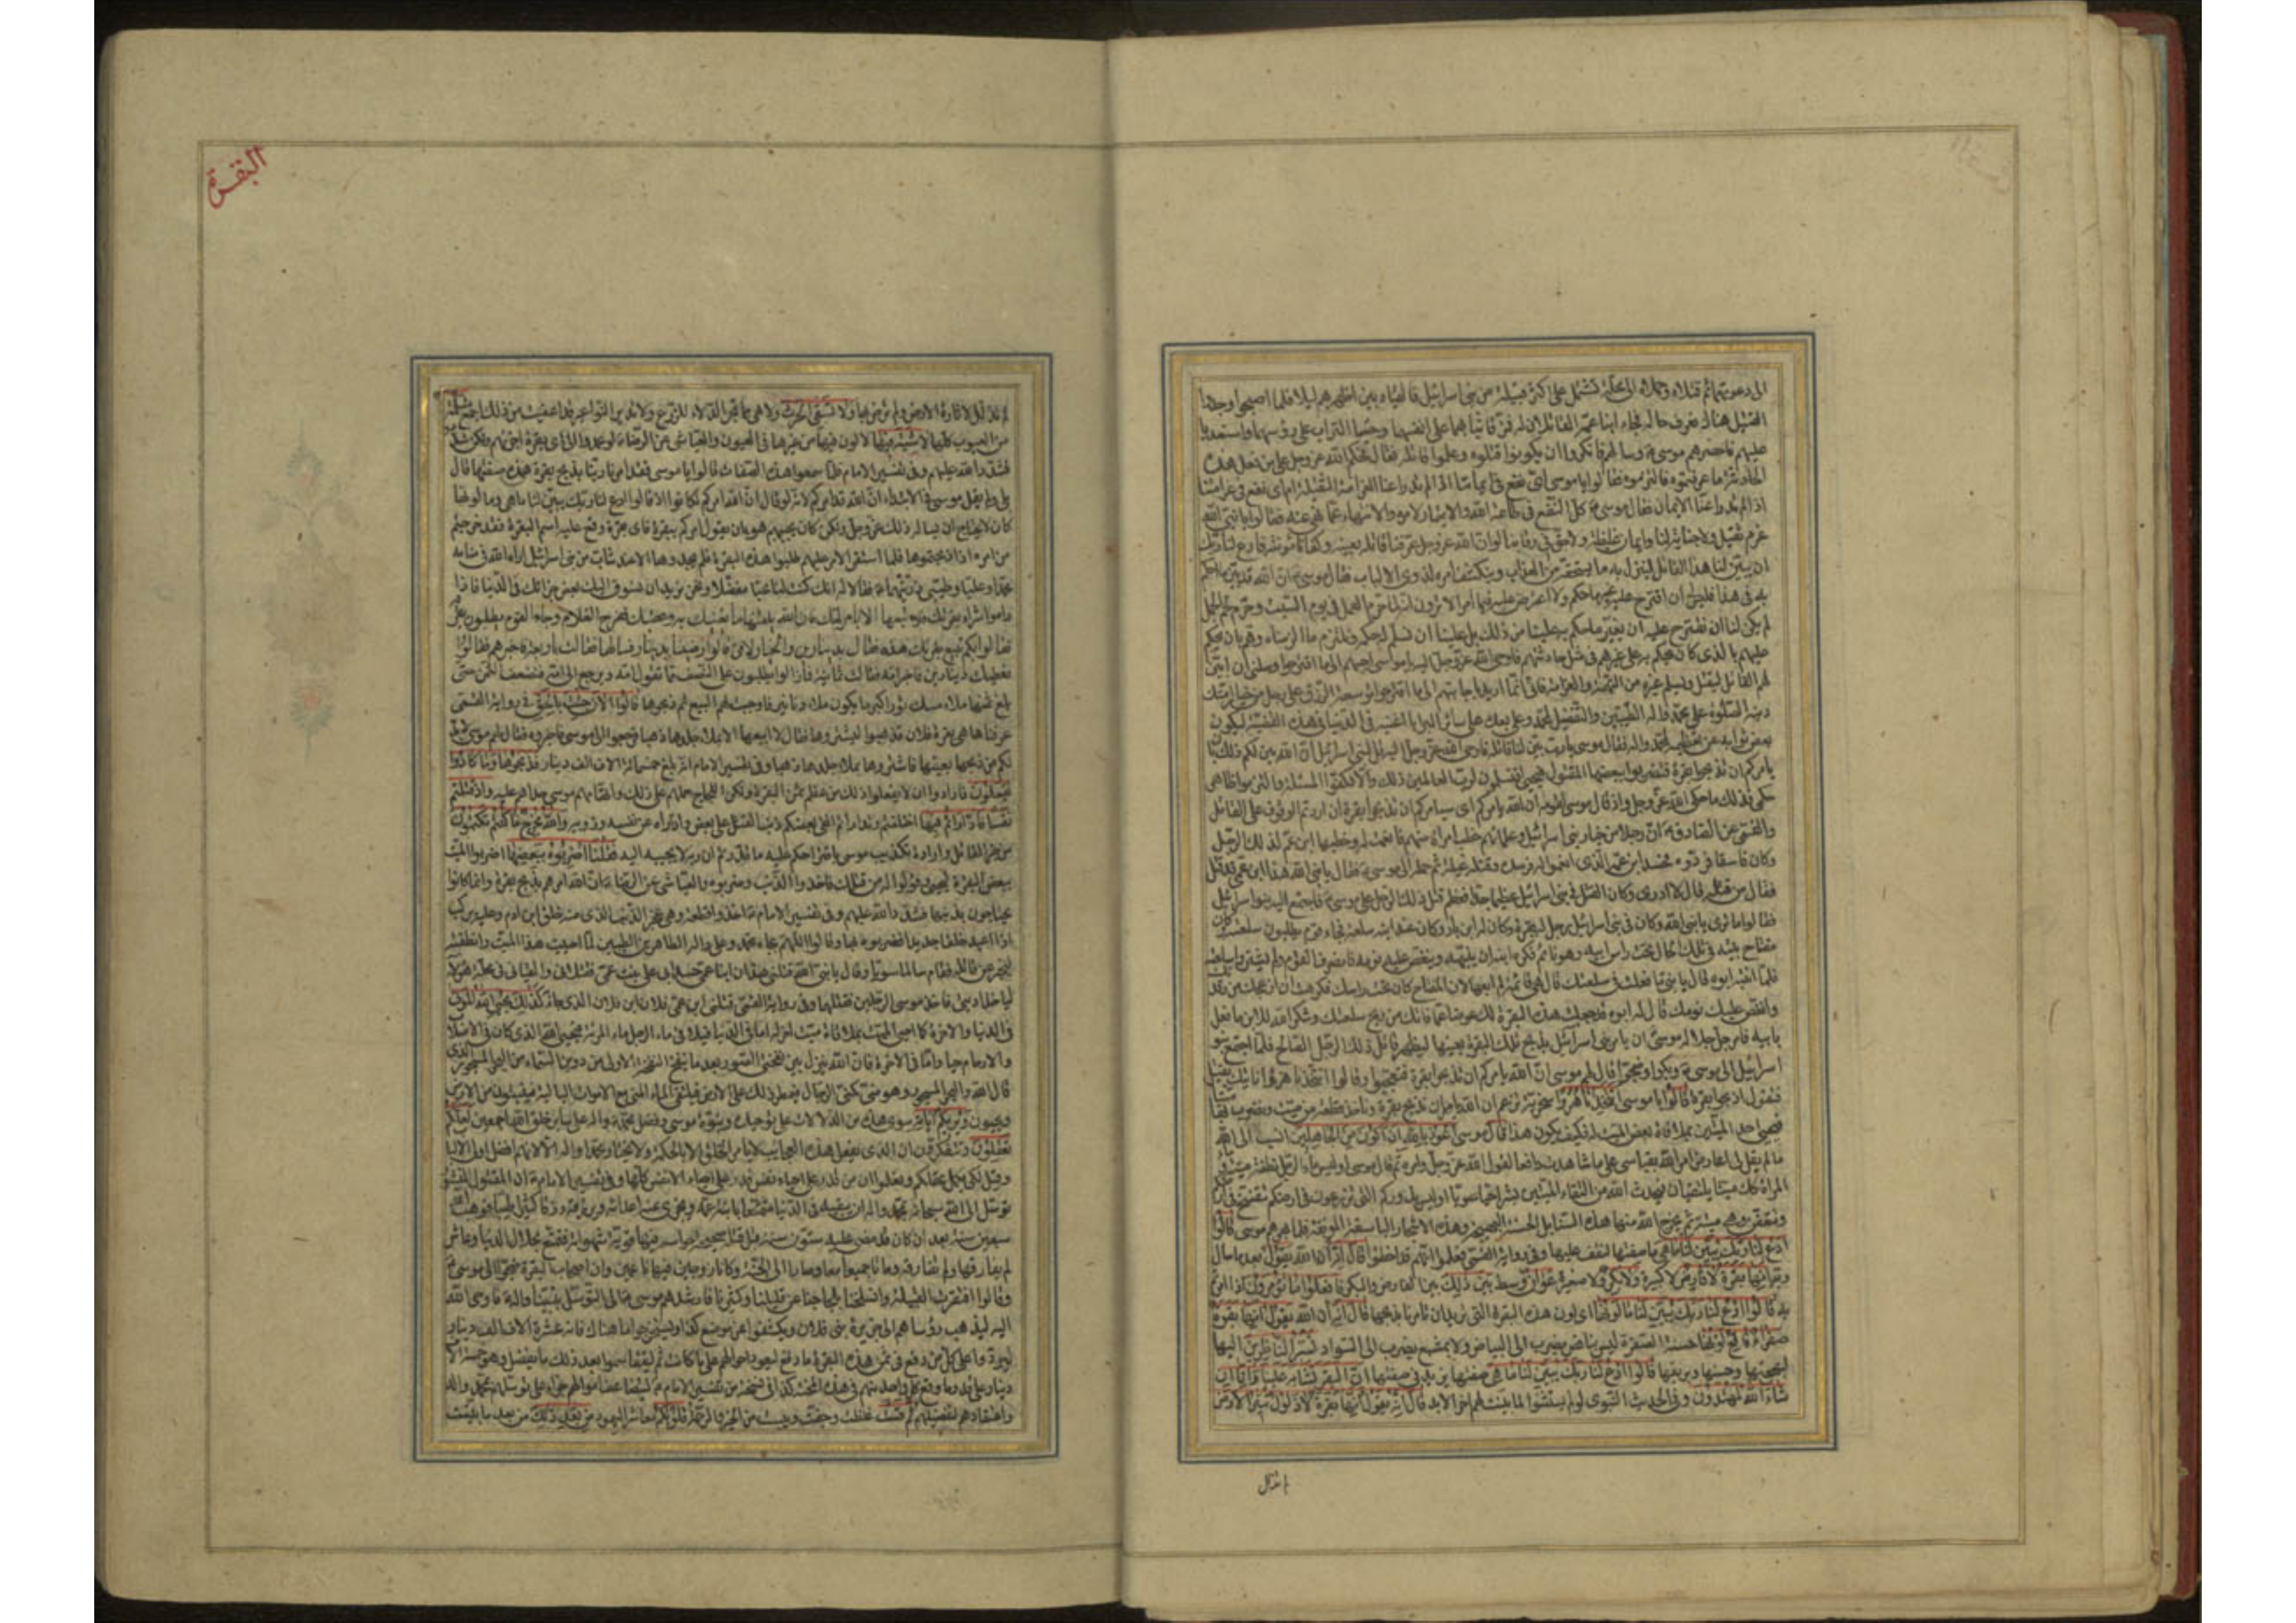 الى دعوتهما ثم قتلاه وحملاه الى محلة تشتمل على اكثر قبيلة من بنى اسرائيل فالقياه بين اظهرهم ليلا فلما اصبحوا وجدوا
القتيل هناك فعرف حاله فجاء ابنا عمه القاتلان له فمزقا ثيابهما على انفسهما وحثيا التراب على رؤسهما واستعديا
عليهم فاحضرهم موسى وسالهم فانكروا ان يكونوا قتلوه وعلموا قاتله فقال
الحادثة ما عرفتموه فالتزموه فقالوا يا موسى اى نفع فى ايماننا
اذا لم تدرء عنا الايمان فقال موسى كل النفع فى طاعة الله والايتمار لامره والانتهاء عما نهى عنه فقالوا يا نبى الله
غرم ثقيل ولا جناية لنا وايمان غليظة ولا حق فى رقابنا لو ان الله عز وجل عرفنا قاتله بعينه وكفانا مؤنته فادع لنا ربك
ان يبين لنا هذا القاتل لينزل به ما يستحقه من العذاب وينكشف امره لذوى الالباب فقال موسى ان الله قد بين ما احكم
به فى هذا فليس لى ان اقترح عليه غير ما حكم ولا اعترض عليه فيما امر الا ترون انه لما حرم العمل فى يوم السبت وحرم لحم الجمل
لم يكن لنا ان نقترح عليه ان يغير ما حكم به علينا من ذلك بل علينا ان نسلم له حكمه ونلتزم ما الزمناه وهم بان يحكم
عليهم بالذى كان يحكم به على غيرهم فى مثل حادثتهم فاوحى الله عز وجل اليه يا موسى اجبهم الى ما اقترحوا وسلنى ان ابين
لهم القاتل ليقتل ويسلم غيره من التهمة والغرامة فانى انما اريد باجابتهم الى ما اقترحوا توسعة الرزق على رجل من خيار امتك
دينه الصلوة على محمد واله الطيبين والتفضيل لمحمد وعلى بعده على سائر البرايا اغنيه فى الدنيا فى هذه القضية ليكون
بعض ثوابه عن تعظيمه لمحمد واله فقال موسى يا رب بين لنا قاتله فاوحى الله عز وجل اليه قل لبنى اسرائيل ان الله يبين لكم ذلك بان
يامركم ان تذبحوا بقرة فتضربوا ببعضها المقتول فيحيى افتسلمون لرب العالمين ذلك والا فكفوا المسئلة والتزموا ظاهر
حكمى فذلك ما حكى الله عز وجل واذ قال موسى لقومه ان الله يامركم اى سيامركم ان تذبحوا بقرة ان اردتم الوقوف على القاتل
والقمى عن الصادق ان رجلا من خيار بنى اسرائيل وعلمائهم خطب امراة منهم فانعمت له وخطبها ابن عم لذلك الرجل
وكان فاسقا فردوه فحسد ابن عمه الذى انعموا له فرصده وقتله غيلة ثم حمله الى موسى فقال يا نبى الله هذا ابن عمى قد قتل
فقال من قتله قال لا ادرى وكان القتل فى بنى اسرائيل عظيما جدا فعظم قتل ذلك الرجل على موسى فاجتمع اليه بنو اسرائيل
فقالوا ما ترى يا نبى الله وكان فى بنى اسرائيل رجل له بقرة وكان له ابن بار وكان عند ابنه سلعة فجاء قوم يطلبون سلعته وكان
مفتاح بيته فى تلك الحال تحت راس ابيه وهو نائم فكره ابنه ان ينبهه وينغص عليه نومه فانصرف القوم ولم يشتروا سلعته
فلما انتبه ابوه قال يا بنى ما فعلت فى سلعتك قال هى قائمة لم ابعها لان المفتاح كان تحت راسك فكرهت ان ازعجك من رقدتك
وانغص عليك نومك قال له ابوه قد جعلت هذه البقرة لك عوضا عما فاتك من ربح سلعتك وشكر الله للابن ما فعل
بابيه فامر جل جلاله موسى ان يامر بنى اسرائيل بذبح تلك البقرة بعينها ليظهر قاتل ذلك الرجل الصالح فلما اجتمع بنو
اسرائيل الى موسى وبكوا وضجوا قال لهم موسى ان الله يامركم ان تذبحوا بقرة فتعجبوا وقالوا اتتخذنا هزوا ناتيك بقتيل
فتقول اذبحوا بقرة قالوا يا موسى اتتخذنا هزوا سخرية تزعم ان الله يامرنا ان نذبح بقرة وناخذ قطعة من ميت ونضرب بها ميتا
فيحيى احد الميتين بملاقاة بعض الميت له فكيف يكون هذا قال موسى اعوذ بالله ان اكون من الجاهلين انسب الى الله
ما لم يقل لى اعارض امر الله بقياسى على ما شاهدت دافعا لقول الله عز وجل وامره ثم قال موسى او ليس ماء الرجل نطفة ميت
المراة كذلك ميتا يلتقيان فيحدث الله من التقاء الميتين بشرا حيا سويا او ليس بذوركم التى تزرعون فى ارضكم تتفسخ فى
وتتعفن وهى ميتة ثم يخرج الله منها هذه السنابل الحسنة البهيجة وهذه الاشجار الباسقة المونقة فلما بهرهم موسى قالوا
ادع لنا ربك يبين لنا ما هى ما صفتها لنقف عليها وفى رواية القمى فعلموا انهم قد اخطئوا قال انه ان الله يقول بعد ما سال
ربه انها بقرة لا فارض لا كبيرة ولا بكر ولا صغيرة عوان وسط بين ذلك بين الفارض والبكر فافعلوا ما تؤمرون اذا امرتم
به قالوا ادع لنا ربك يبين لنا ما لونها اى لون هذه البقرة التى تريد ان تامرنا بذبحها قال انه ان الله يقول انها بقرة
صفراء فاقع لونها حسنة الصفرة ليس بناقص يضرب الى البياض ولا بمشبع يضرب الى السواد تسر الناظرين اليها
لبهجتها وحسنها وبريقها قالوا ادع لنا ربك يبين لنا ما هى ما صفتها يزيد فى صفتها ان البقر تشابه علينا وانا ان
شاء الله لمهتدون وفى الحديث النبوى لو لم يستثنوا لما بينت لهم اخر الابد قال انه يقول انها بقرة لا ذلول تثير الارض
البقرة
لم تذلل لاثارة الارض ولم ترض بها ولا تسقى الحرث ولا هى مما تجر الدلاء للزرع ولا تدير النواعير قد اعفيت من ذلك اجمع مسلمة
من العيوب كلها لا شية فيها لا لون فيها من غيرها فى العيون والعياشى عن الرضا لو عمدوا الى اى بقرة اجزأتهم ولكن شددوا
فشدد الله عليهم وفى تفسير الامام فلما سمعوا هذه الصفات قالوا يا موسى فقد امرنا ربنا بذبح بقرة هذه صفتها قال
بلى ولم يقل موسى فى الابتداء ان الله قد امركم لانه لو قال ان الله امركم لكانوا اذا قالوا ادع لنا ربك يبين لنا ما هى وما لونها
كان لا يحتاج ان يسال ذلك عز وجل ولكن كان يجيبهم هو بان يقول امركم ببقرة فاى بقرة وقع عليه اسم البقرة فقد خرجتم
من امره اذا ذبحتموها فلما استقر الامر عليهم طلبوا هذه البقرة فلم يجدوها الا عند شاب من بنى اسرائيل اراه الله فى منامه
محمدا وعليا وطيبى ذريتهما فقالا له انك كنت لنا محبا مفضلا ونحن نريد ان نسوق اليك بعض جزائك فى الدنيا فاذا
راموا شراء بقرتك فلا تبعها الا بامر امك فان الله يلقنها ما يغنيك به وعقبك ففرح الغلام وجاء القوم يطلبون بقرته
فقالوا بكم تبيع بقرتك هذه فقال بدينارين والخيار لامى قالوا رضينا بدينار فسالها فقالت باربعة فاخبرهم فقالوا
نعطيك دينارين فاخبر امه فقالت ثمانية فما زالوا يطلبون على النصف مما تقول امه ويرجع الى امه فتضعف الثمن حتى
بلغ ثمنها ملاء مسك ثور اكبر ما يكون ملاه دنانير فاوجب لهم البيع ثم ذبحوها قالوا الان جئت بالحق فى رواية القمى
عرفناها هى بقرة فلان فذهبوا ليشتروها فقال لا ابيعها الا بملاء جلدها ذهبا فرجعوا الى موسى فاخبروه فقال لهم موسى لا بد
لكم من ذبحها بعينها فاشتروها بملاء جلدها ذهبا وفى تفسير الامام انه بلغ خمسمائة الاف الف دينار فذبحوها وما كادوا
يفعلون فارادوا ان لا يفعلوا ذلك من عظم ثمن البقرة ولكن اللجاج حملهم على ذلك واتهامهم موسى حداهم عليه واذ قتلتم
نفسا فادارأتم فيها اختلفتم وتدارأتم القى بعضكم ذنب القتل على بعض وادرأه عن نفسه وذويه والله مخرج ما كنتم تكتمون
من خبر القاتل وارادة تكذيب موسى باقتراحكم عليه ما قدرتم ان ربه لا يجيبه اليه فقلنا اضربوه ببعضها اضربوا الميت
ببعض البقرة ليحيى وقولوا له من قتلك فاخذوا الذنب وضربوه والعياشى عن الرضا ان الله امرهم بذبح بقرة وانما كانوا
يحتاجون بذنبها فشدد الله عليهم وفى تفسير الامام اخذوا قطعة وهى عجز الذنب الذى منه خلق ابن ادم وعليه يركب
اذا اعيد خلقا جديدا فضربوه بها وقالوا اللهم بجاه محمد وعلى واله الطاهرين الطيبين لما احييت هذا الميت وانطقته
ليخبر عن قاتله فقام سالما سويا وقال يا نبى الله قتلنى هذان ابنا عمى حسدانى على بنت عمى فقتلانى والقيانى فى محلة هؤلاء
لياخذا ديتى فاخذ موسى الرجلين فقتلهما وفى رواية القمى قتلنى ابن عمى فلان ابن فلان الذى جاء كذلك يحيى الله الموتى
فى الدنيا والاخرة كما احيى الميت بملاقاة ميت اخر له اما فى الدنيا فيلاقى ماء الرجل ماء المرئة فيحيى الله الذى كان فى الاصلاب
والارحام حيا واما فى الاخرة فان الله ينزل بين نفختى الصور بعد ما ينفخ النفخة الاولى من دوين السماء من البحر المسجور الذى
قال الله والبحر المسجور وهو منى كمنى الرجال فيمطر ذلك على الارض فيلتقى الماء المنى مع الاموات البالية فينبتون من الارض
ويحيون ويريكم اياته سوى هذه من الدلالات على توحيده ونبوة موسى وفضل محمد واله على سائر خلق الله اجمعين لعلكم
تعقلون وتتفكرون ان الذى يفعل هذه العجائب لا يامر الخلق الا بالحكمة ولا يختار محمدا واله الا لانهم افضل اولى الالباب
وقيل لكى يكمل عقلكم وتعلموا ان من قدر على احياء نفس قدر على احياء الانفس كلها وفى تفسير الامام ان المقتول المنشور
توسل الى الله سبحانه بمحمد واله ان يبقيه فى الدنيا متمتعا بابنة عمه ويجزى عنه اعدائه ويرزقه رزقا كثيرا طيبا فوهب الله له
سبعين سنة بعد ان كان قد مضى عليه ستون سنة قبل قتله صحيحة حواسه فيها قوية شهواته فتمتع بحلال الدنيا وعاش
لم يفارقها ولم تفارقه وماتا جميعا معا وصارا الى الجنة وكانا زوجين فيها ناعمين وان اصحاب البقرة ضجوا الى موسى
وقالوا افتقرت القبيلة وانسلخنا بلجاجنا عن قليلنا وكثيرنا فارشدهم موسى الى التوسل بنبينا واله فاوحى الله
اليه ليذهب رؤساهم الى خربة بنى فلان ويكشفوا عن موضع كذا ويستخرجوا ما هناك فانه عشرة الاف الف دينار
ليردوا على كل من دفع فى ثمن هذه البقرة ما دفع لتعود احوالهم على ما كانت ثم ليتقاسموا بعد ذلك ما يفضل وهو خمسة الاف
دينار على قدر ما دفع كل واحد منهم فى هذه المحنة
واعتقادهم لتفضيلهم ثم قست غلظت وجفت ويبست من الخير والرحمة قلوبكم معاشر اليهود من بعد ذلك من بعد ما تبينت